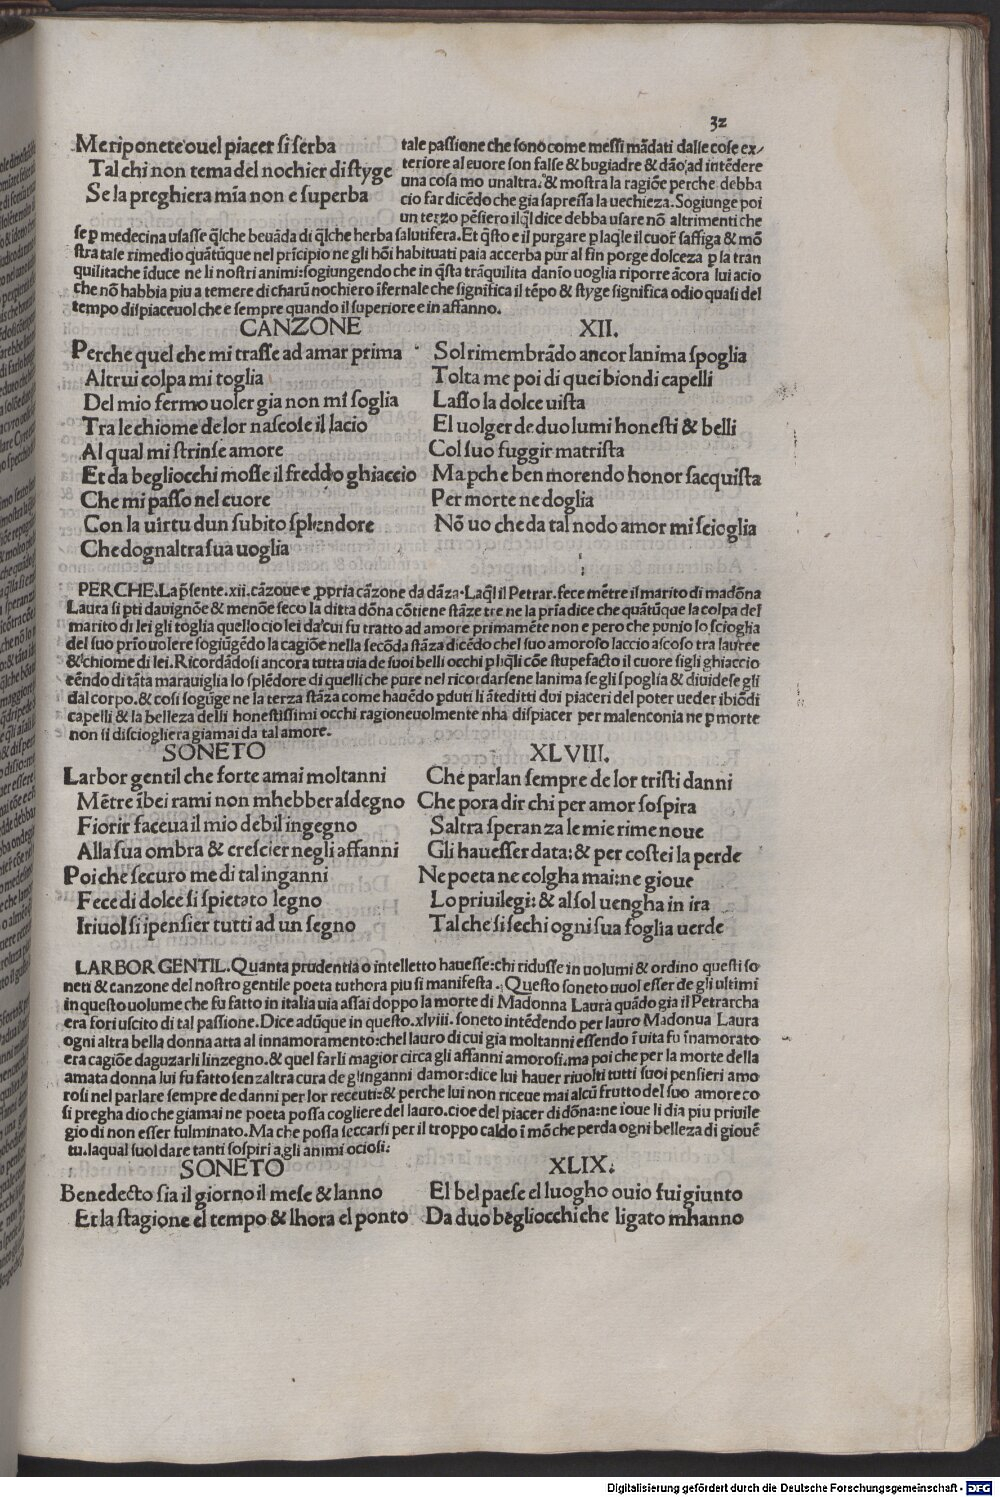 32
Me riponete ouel piacer si serba
Tal chi non tema del nochier di styge
Se la preghiera mia non e superba
tale passione che sono come messi mādati dalle cose ex/
teriore al cuore son false & bugiadre & dāo ad intēdere
una cosa mo unaltra. & mostra la ragiōe perche debba
cio far dicēdo che gia sapressa la uechieza. Sogiunge poi
un terzo pēsiero il q̄l dice debba usare nō altrimenti che
se ꝑ medecina usasse q̄lche beuāda di q̄lche herba salutifera. Et q̄sto e il purgare ꝑ laq̄le il cuor saffiga & mō
stra tale rimedio quātūque nel prīcipio ne gli hōi habituati paia accerba pur al fin porge dolceza ꝑ la tran
quilita che īduce ne li nostri animi: sogiungendo che in q̄sta trāquilita danīo uoglia riporre ācora lui acio
che nō habbia piu a temere di charū nochiero īfernale che significa il tēpo & styge significa odio quasi del
tempo dispiaceuol che e sempre quando il superiore e in affanno.
CANZONE XII.
Perche quel che mi trasse ad amar prima
Altrui colpa mi toglia
Del mio fermo uoler gia non mi soglia
Tra le chiome de lor nascose il lacio
Al qual mi strinse amore
Et da begliocchi mosse il freddo ghiaccio
Che mi passo nel cuore
Con la uirtu dun subito splendore
Che dognaltra sua uoglia
Sol rimembrādo ancor lanima spoglia
Tolta me poi di quei biondi capelli
Lasso la dolce uista
El uolger de duo lumi honesti & belli
Col suo fuggir matrista
Ma pche ben morendo honor sacquista
Per morte ne doglia
Nō uo che da tal nodo amor mi scioglia
PERCHE. La p̄sente .xii. cāzoue e ꝓpria cāzone da dāza. Laq̄l il Petrar. fece mētre il marito di madōna
Laura si ptī dauignōe & menōe seco la ditta dōna cōtiene stāze tre ne la prīa dice che quātūque la colpa del
marito di lei gli toglia quello cio lei da cui fu tratto ad amore primamēte non e pero che punio lo scioglia
del suo prīo uolere sogiūgēdo la cagiōe nella secōda stāza dicēdo chel suo amoroso laccio ascoso tra lauree
& chiome di lei. Ricordādosi ancora tutta uia de suoi belli occhi p liq̄li cōe stupefacto il cuore sigli ghiaccio
cēndo di tāta marauiglia lo splēdore di quelli che pure nel ricordarsene lanima se gli spoglia & diuidese gli
dal corpo. & cosi sogūge ne la terza stāza come hauēdo pduti li āteditti dui piaceri del poter ueder ibiōdi
capelli & la belleza delli honestissimi occhi ragioneuolmente nha dispiacer per malenconia ne ꝑ morte
non si disciogliera giamai da tal amore.
SONETO XLVIII.
Larbor gentil che forte amai moltanni
Mētre ībei rami non mhebber asdegno
Fiorir faceua il mio debil ingegno
Alla sua ombra & crescier negli affanni
Poi che securo me di tal inganni
Fece di dolce si spietato legno
I riuolsi ipensier tutti ad un segno
Che parlan sempre de lor tristi danni
Che pora dir chi per amor sospira
Saltra speranza le mie rime noue
Gli hauesser data: & per costei la perde
Ne poeta ne colgha mai: ne gioue
Lo priuilegi: & al sol uengha in ira
Tal che si sechi ogni sua foglia uerde
LARBOR GENTIL. Quanta prudentia o intelletto hauesse: chi ridusse in uolumi & ordino questi so
neti & canzone del nostro gentile poeta tuthora piu si manifesta. Questo soneto uuol esser de gli ultimi
in questo uolume che fu fatto in italia uia assai doppo la morte di Madonna Laura quādo gia il Petrarcha
era fori uscito di tal passione. Dice adūque in questo .xlviii. soneto intēdendo per lauro Madonua Laura
ogni altra bella donna atta al innamoramento: chel lauro di cui gia moltanni essendo ī uita fu īnamorato
era cagiōe daguzarli linzegno. & quel farli magior circa gli affanni amorosi. ma poi che per la morte della
amata donna lui fu fatto senzaltra cura de glinganni damor: dice lui hauer riuolti tutti suoi pensieri amo
rosi nel parlare sempre de danni per lor receuti: & perche lui non riceue mai alcū frutto del suo amore co
si pregha dio che giamai ne poeta possa cogliere del lauro. cioe del piacer di dōna: ne ioue li dia piu priuile
gio di non esser fulminato. Ma che possa seccarsi per il troppo caldo ī mō che perda ogni belleza di giouē
tu. laqual suol dare tanti sospiri a gli animi ociosi.
SONETO XLIX.
Benedecto sia il giorno il mese & lanno
Et la stagione el tempo & lhora el ponto
El bel paese el luogho ouio fui giunto
Da duo begliocchi che ligato mhanno
Digitalisierung gefördert durch die Deutsche Forschungsgemeinschaft - DFG